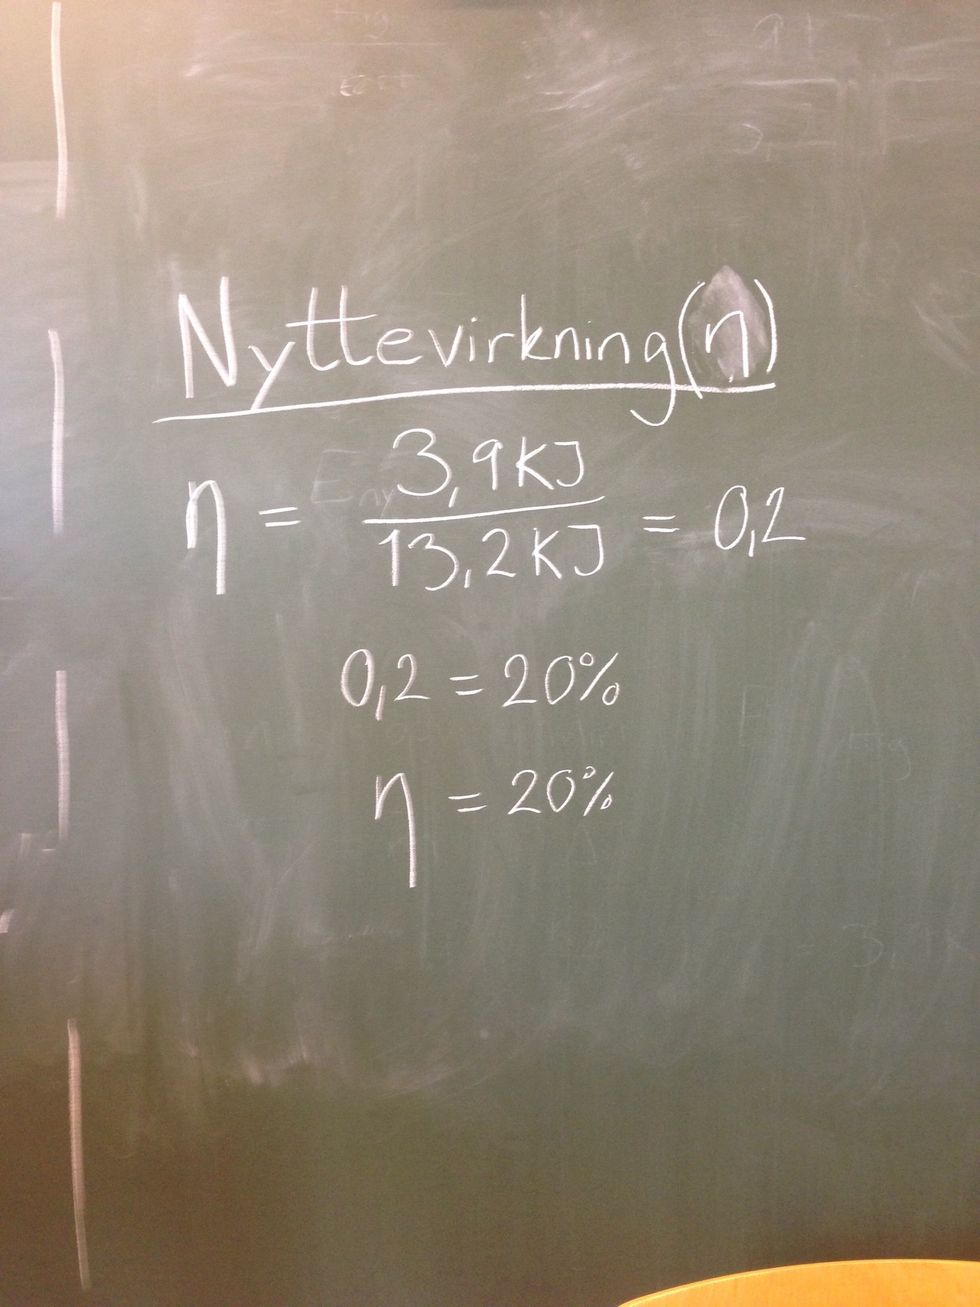 Nyttevirkning(η)
η = 3,9KJ / 13,2KJ = 0,2
0,2 = 20%
η = 20%